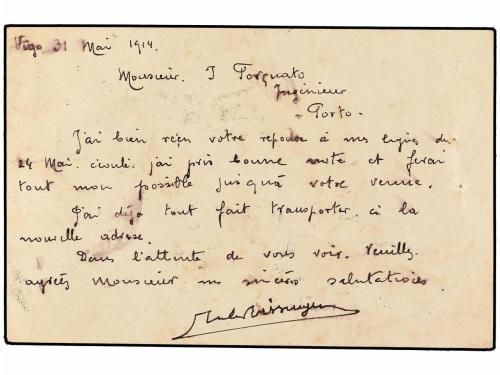 Vigo 31 Mai 1914.
Monsieur. J Torquato
Ingénieur
- Porto -
J'ai bien reçu votre reponse à mes lignes du
24 Mai. écoulé. j'ai pris bonne note et ferai
tout mon possible jusquà votre venue.
J'ai déja tout fait transporter. à la
nouvelle adresse.
Dans l'attente de vous voir. Veuillez.
agréer Monsieur mes sincères salutations.